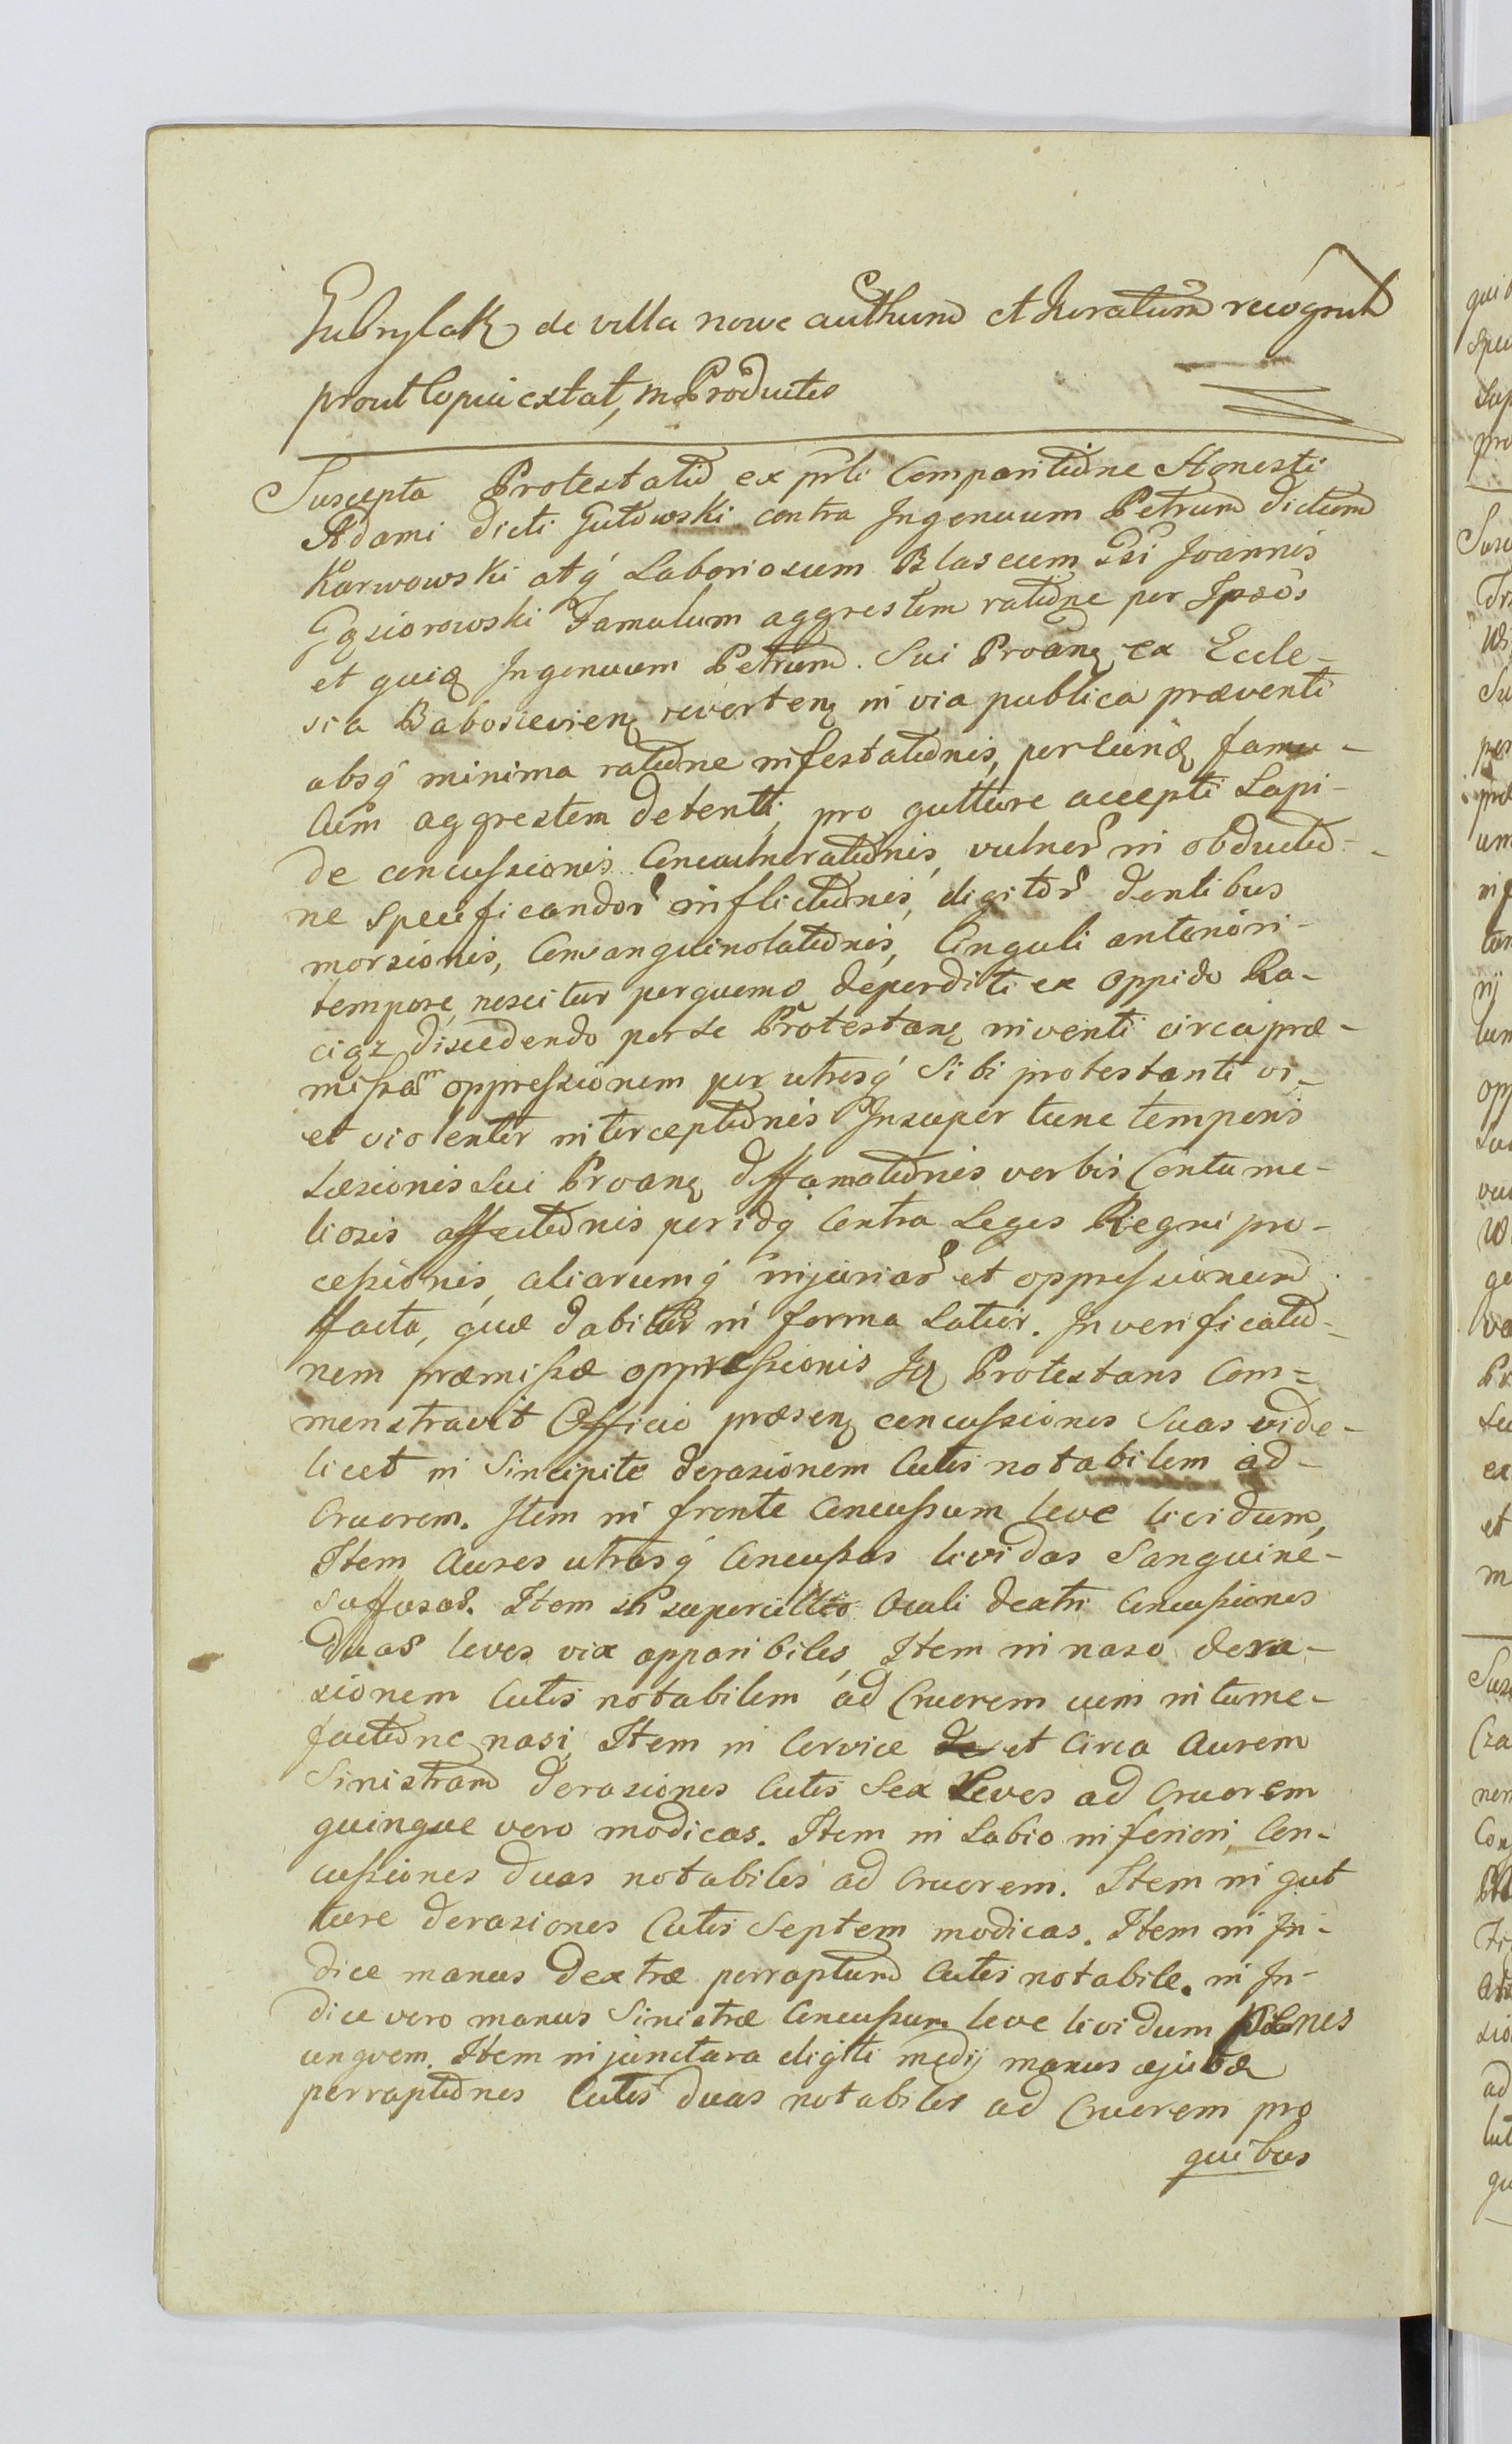 Gubrylak de villa nowe authum et Juratum recognit
prout Copia extat, in Productis
Suscepta Protestatio ex prti Comparitione Honesti
Adami dicti Gutowski contra Ingenuum Petrum dictum
Karwowski atq Laboriosum Blaseum Gsi Joannis
Gąsiorowski Famulum aggrestem ratione per Ipsos
et quidē Ingenuum Petrum. Sui Proang ex Eccle-
sia Babosicvieng reverteng in via publica præventi
absq minima ratione infestationis, per eundē famu-
lum aggrestem detenti, pro gutture accepti Lapi-
de concussionis Convulnerationis, vulner in obductio-
ne specificandor inflictionis, digitor dentibus
morsionis, Consanguinolationis, Cinguli anteriori-
tempore, nescitur perquemo deperditi ex oppido Ra-
ciąz discedendo per se Protestang inventi circa præ-
missam oppressionem per utrosq sibi protestanti vi-
et violenter interceptionis Insuper tunc temporis
Læsionis sui Proang diffamationis verbis Contume-
liosis affectionis per idq Contra Leges Regni pro-
cessionis, aliarumq injuriar et oppressionum
facta, quæ dabitur in forma Latior. In verificatio-
nem præmissæ oppressionis Iq Protestans Com-
menstravit Officio præseng concussiones suas vide-
licet in Sincipite derasionem Cutis notabilem ad-
Cruorem. Item in fronte Concussum leve lividum,
Item Aures utrasq Concussas lividas Sanguine-
suffusas. Item in supercilio Oculi dextri Concussiones
duas leves vix apparibiles, Item in naso dera-
sionem Cutis notabilem ad Cruorem cum intume-
factione nasi, Item in Cervice et Circa Aurem
Sinistram derasiones Cutis Sex Leves ad Cruorem
quinque vero modicas. Item in Labio inferiori, Con-
cussiones duas notabiles ad Cruorem. Item in gut
ture derasiones Cutis Septem modicas. Item in In-
dice manus dextræ perraptum Cutis notabile. in In-
dice vero manus Sinistræ Concussum leve lividum penes
ungvem. Item in junctura digiti medij manus ejusdē
perraptiones Cutis duas notabiles ad Cruorem pro
quibus